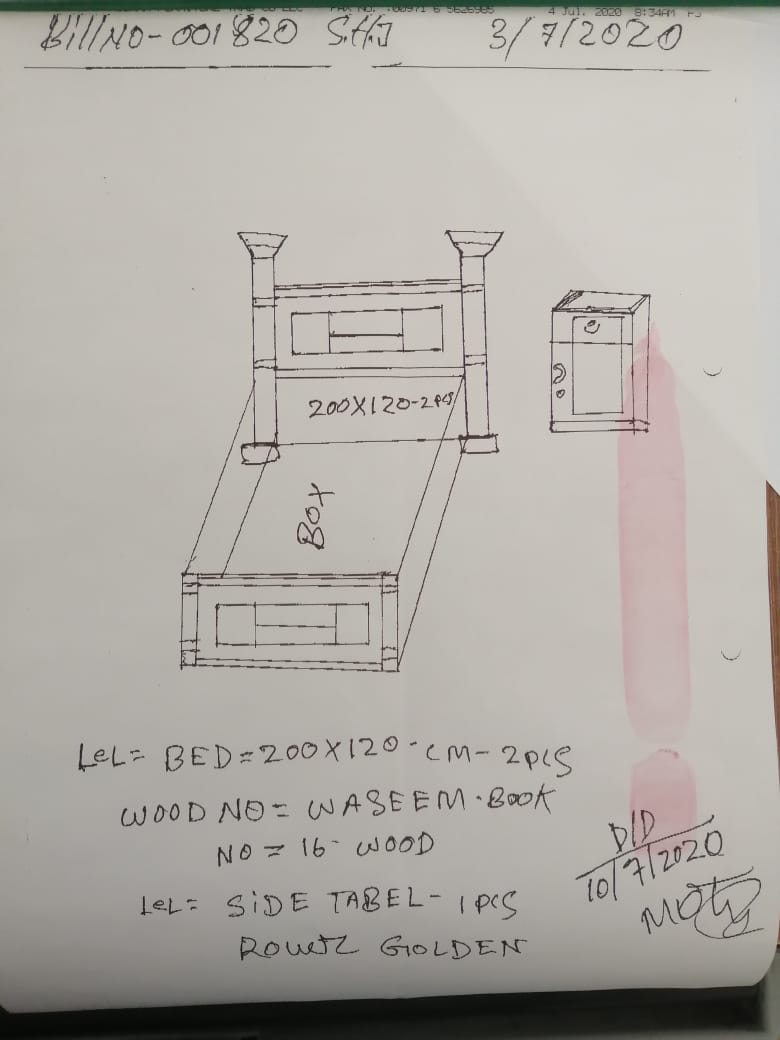 FAX NO. :00971 6 5626985 4 Jul. 2020 8:34AM P3
Bill NO-001820 S.H.J 3/7/2020
200X120-2PCS
BOX
LeL= BED=200X120-CM-2PCS
WOOD NO= WASEEM.BOOK
NO = 16-WOOD
LeL= SiDE TABEL-1PCS
GOLDEN
D/D
10/7/2020